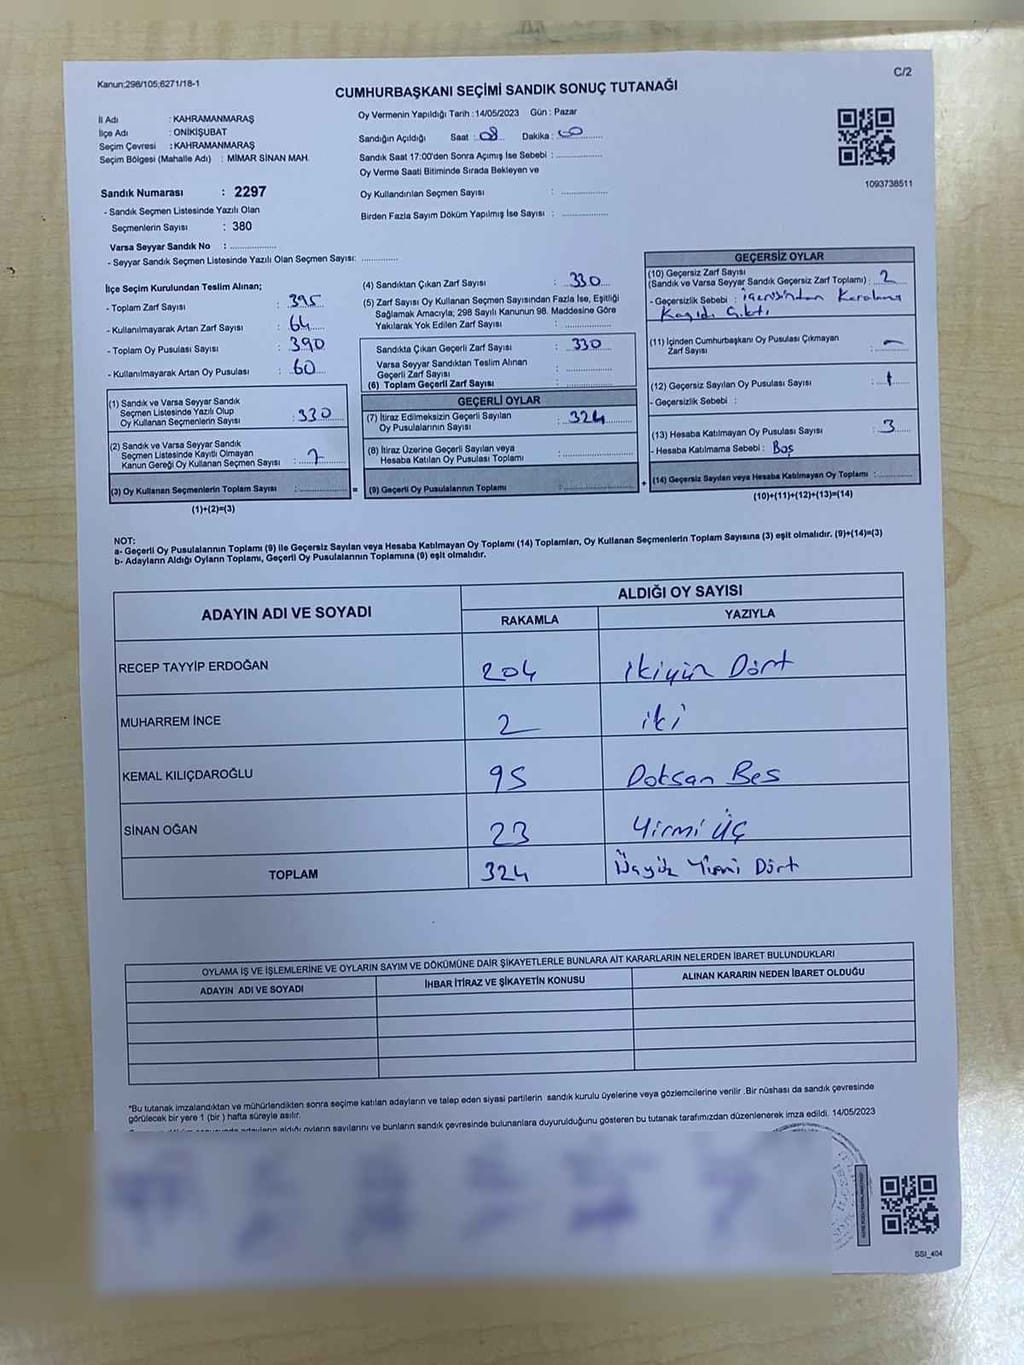 C/2
Kanun:298/105;6271/18-1
CUMHURBAŞKANI SEÇİMİ SANDIK SONUÇ TUTANAĞI
İl Adı : KAHRAMANMARAŞ
İlçe Adı : ONİKİŞUBAT
Seçim Çevresi : KAHRAMANMARAŞ
Seçim Bölgesi (Mahalle Adı) : MİMAR SİNAN MAH.
Sandık Numarası : 2297
- Sandık Seçmen Listesinde Yazılı Olan
Seçmenlerin Sayısı : 380
Varsa Seyyar Sandık No :
- Seyyar Sandık Seçmen Listesinde Yazılı Olan Seçmen Sayısı:
Oy Vermenin Yapıldığı Tarih :14/05/2023 Gün : Pazar
Sandığın Açıldığı Saat : 08 Dakika : 00
Sandık Saat 17:00'den Sonra Açımış İse Sebebi :
Oy Verme Saati Bitiminde Sırada Bekleyen ve
Oy Kullandırılan Seçmen Sayısı :
Birden Fazla Sayım Döküm Yapılmış İse Sayısı :
1093738511
İlçe Seçim Kurulundan Teslim Alınan;
- Toplam Zarf Sayısı : 395
- Kullanılmayarak Artan Zarf Sayısı : 64
- Toplam Oy Pusulası Sayısı : 390
- Kullanılmayarak Artan Oy Pusulası : 60
(1) Sandık ve Varsa Seyyar Sandık
Seçmen Listesinde Yazılı Olup
Oy Kullanan Seçmenlerin Sayısı : 330
(2) Sandık ve Varsa Seyyar Sandık
Seçmen Listesinde Kayıtlı Olmayan
Kanun Gereği Oy Kullanan Seçmen Sayısı :
(3) Oy Kullanan Seçmenlerin Toplam Sayısı :
(1)+(2)=(3)
(4) Sandıktan Çıkan Zarf Sayısı : 330
(5) Zarf Sayısı Oy Kullanan Seçmen Sayısından Fazla İse, Eşitliği
Sağlamak Amacıyla; 298 Sayılı Kanunun 98. Maddesine Göre
Yakılarak Yok Edilen Zarf Sayısı :
Sandıkta Çıkan Geçerli Zarf Sayısı : 330
Varsa Seyyar Sandıktan Teslim Alınan
Geçerli Zarf Sayısı :
(6) Toplam Geçerli Zarf Sayısı :
GEÇERLİ OYLAR
(7) İtiraz Edilmeksizin Geçerli Sayılan
Oy Pusulalarının Sayısı : 324
(8) İtiraz Üzerine Geçerli Sayılan veya
Hesaba Katılan Oy Pusulası Toplamı :
= (9) Geçerli Oy Pusulalarının Toplamı :
GEÇERSİZ OYLAR
(10) Geçersiz Zarf Sayısı
(Sandık ve Varsa Seyyar Sandık Geçersiz Zarf Toplamı) : 2
- Geçersizlik Sebebi : İçerisinden Karalama
Kağıdı Çıktı
(11) İçinden Cumhurbaşkanı Oy Pusulası Çıkmayan
Zarf Sayısı : -
(12) Geçersiz Sayılan Oy Pusulası Sayısı : 1
- Geçersizlik Sebebi :
(13) Hesaba Katılmayan Oy Pusulası Sayısı : 3
- Hesaba Katılmama Sebebi : Boş
+ (14) Geçersiz Sayılan veya Hesaba Katılmayan Oy Toplamı :
(10)+(11)+(12)+(13)=(14)
NOT:
a- Geçerli Oy Pusulalarının Toplamı (9) ile Geçersiz Sayılan veya Hesaba Katılmayan Oy Toplamı (14) Toplamları, Oy Kullanan Seçmenlerin Toplam Sayısına (3) eşit olmalıdır. (9)+(14)=(3)
b- Adayların Aldığı Oyların Toplamı, Geçerli Oy Pusulalarının Toplamına (9) eşit olmalıdır.
ADAYIN ADI VE SOYADI
ALDIĞI OY SAYISI
RAKAMLA YAZIYLA
RECEP TAYYİP ERDOĞAN 204 ikiyüz Dört
MUHARREM İNCE 2 iki
KEMAL KILIÇDAROĞLU 95 Doksan Beş
SİNAN OĞAN 23 Yirmi Üç
TOPLAM 324 Üçyüz Yirmi Dört
OYLAMA İŞ VE İŞLEMLERİNE VE OYLARIN SAYIM VE DÖKÜMÜNE DAİR ŞİKAYETLERLE BUNLARA AİT KARARLARIN NELERDEN İBARET BULUNDUKLARI
ADAYIN ADI VE SOYADI İHBAR İTİRAZ VE ŞİKAYETİN KONUSU ALINAN KARARIN NEDEN İBARET OLDUĞU
*Bu tutanak imzalandıktan ve mühürlendikten sonra seçime katılan adayların ve talep eden siyasi partilerin sandık kurulu üyelerine veya gözlemcilerine verilir .Bir nüshası da sandık çevresinde
görülecek bir yere 1 (bir ) hafta süreyle asılır.
adayların aldığı oyların sayılarını ve bunların sandık çevresinde bulunanlara duyurulduğunu gösteren bu tutanak tarafımızdan düzenlenerek imza edildi. 14/05/2023
SSI_404